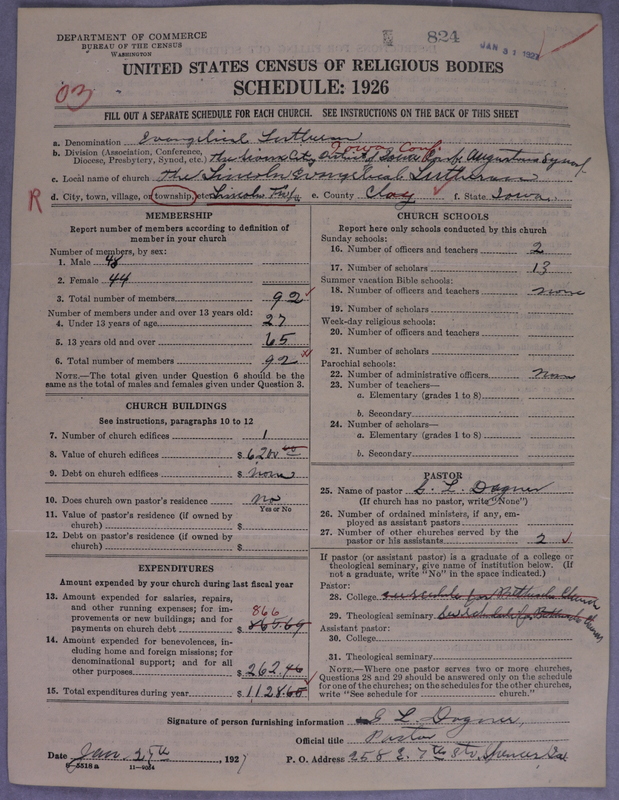 DEPARTMENT OF COMMERCE
BUREAU OF THE CENSUS
WASHINGTON
1 824
JAN 31 1927
UNITED STATES CENSUS OF RELIGIOUS BODIES
SCHEDULE: 1926
FILL OUT A SEPARATE SCHEDULE FOR EACH CHURCH. SEE INSTRUCTIONS ON THE BACK OF THIS SHEET
03
a. Denomination Evangelical Lutheran
Iowa Conf.
b. Division (Association, Conference, Diocese, Presbytery, Synod, etc.) The Sioux City District of Iowa Conf. Augustana Synod
c. Local name of church The Lincoln Evangelical Lutheran
R d. City, town, village, or township, etc. Lincoln Twp. e. County Clay f. State Iowa
MEMBERSHIP
Report number of members according to definition of
member in your church
Number of members, by sex:
1. Male 48
2. Female 44
3. Total number of members 92
Number of members under and over 13 years old:
4. Under 13 years of age 27
5. 13 years old and over 65
6. Total number of members 92
NOTE.—The total given under Question 6 should be the
same as the total of males and females given under Question 3.
CHURCH BUILDINGS
See instructions, paragraphs 10 to 12
7. Number of church edifices 1
8. Value of church edifices $ 6200
9. Debt on church edifices $ none
10. Does church own pastor's residence no
Yes or No
11. Value of pastor's residence (if owned by
church) $
12. Debt on pastor's residence (if owned by
church) $
EXPENDITURES
Amount expended by your church during last fiscal year
13. Amount expended for salaries, repairs,
and other running expenses; for im-
provements or new buildings; and for
payments on church debt $ 866
14. Amount expended for benevolences, in-
cluding home and foreign missions; for
denominational support; and for all
other purposes $ 262.46
15. Total expenditures during year $ 1128.65
CHURCH SCHOOLS
Report here only schools conducted by this church
Sunday schools:
16. Number of officers and teachers 2
17. Number of scholars 13
Summer vacation Bible schools:
18. Number of officers and teachers none
19. Number of scholars
Week-day religious schools:
20. Number of officers and teachers
21. Number of scholars
Parochial schools:
22. Number of administrative officers none
23. Number of teachers—
a. Elementary (grades 1 to 8)
b. Secondary
24. Number of scholars—
a. Elementary (grades 1 to 8)
b. Secondary
PASTOR
25. Name of pastor G. L. Dagner
(If church has no pastor, write "None")
26. Number of ordained ministers, if any, em-
ployed as assistant pastors
27. Number of other churches served by the
pastor or his assistants 2
If pastor (or assistant pastor) is a graduate of a college or
theological seminary, give name of institution below. (If
not a graduate, write "No" in the space indicated.)
Pastor:
28. College see schedule for Bethania Church
29. Theological seminary See schedule for Bethania Church
Assistant pastor:
30. College
31. Theological seminary
NOTE.—Where one pastor serves two or more churches,
Questions 28 and 29 should be answered only on the schedule
for one of the churches; on the schedules for the other churches,
write "See schedule for church."
Signature of person furnishing information G L Dagner,
Official title Pastor
Date Jan. 29th, 1927 P. O. Address 258 E. 7th St., Spencer, Ia.
8-5518a 11-9054